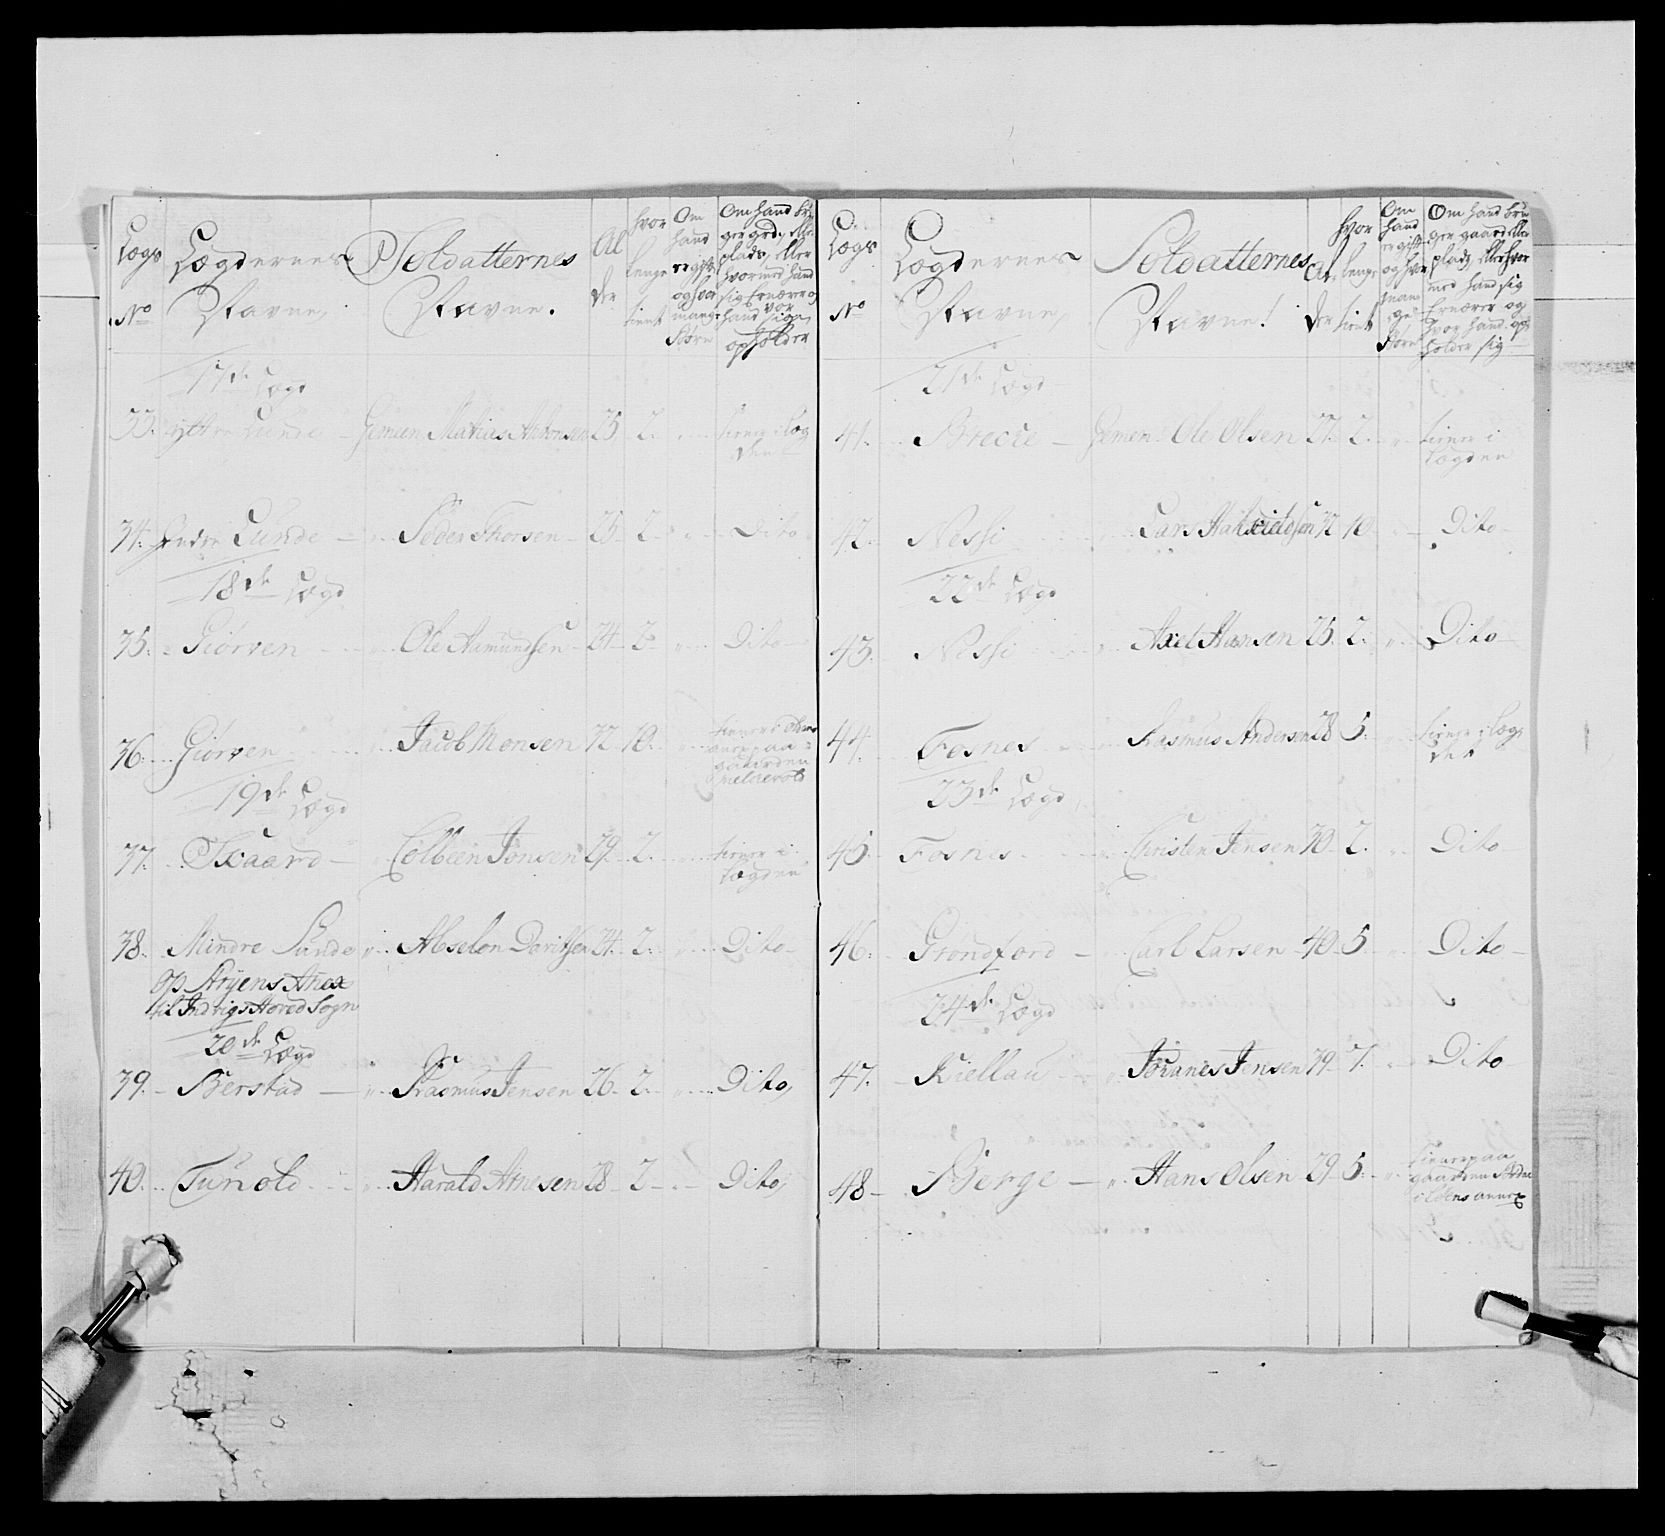 Lægs No
Lægdernes Navne
Soldatternes Navne.
Alder
hvor lenge tient
Om hand er gift og hvor mange Børn
Om hand bruger grd, eller plads, eller hvormed hand sig Ernærer og hvor hand sig opholder
17de Lægd
33. Yttre Lunde - Gemeen Matias 25 2. tiener i Lægden
34. Indre Lunde - Peder Thorsen - 25 2 Dito
18de Lægd
35. Giørven Ole Aamundsen - 24 2 Dito
36. Giørven Jacob Monsen 32 10. tiener paa gaarden
19de Lægd
37. Skaard - Colbeen Jonsen 29. 2. tiener i Lægden
38. Mindre Sunde Abselon Davitsen 24. 2. Dito
op Stryens Anex
til Indvigs Hoved Sogn
20de Lægd
39. Berstad - Rasmus Jensen 26 2. Dito,
40. Tunold Harald Arnesen 28 2 Dito,
Lægs No
Lægdernes Navne
Soldatternes Navne!
Alder
hvor lenge tient
Om hand er gift og hvor mange Børn
Om hand bruger gaard eller plads, eller hvormed hand sig Ernærer og hvor hand opholder sig
21de Lægd
41. - Gemen Ole Olsen 27. 2. tiener i Lægden
42. Nessi Lars 32 10 Dito
22de Lægd
43. Nessi Axel Hansen 25. 2. Dito
44. Fosnes Rasmus Andersen 28 5. tiener i Lægdet
23de Lægd
45. Fosnes Christen Jensen 30 2. Dito
46. Carl Larsen 40 5 Dito
24de Lægd
47. Kiellau Johanes Jensen 39. 7. Dito
48 - Berge - Hans Olsen 29 5. tiener paa gaarden annex